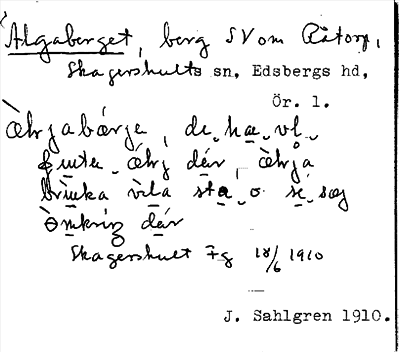 Älgaberget, berg SV om Råtorp,
Skagershults sn, Edsbergs hd,
Ör. l.
æ̀ljabærja, de hæ vl
únte æ̀lj dær, æ̀lja
brùka vìla sta o se sæg
òmkring dær
Skagershult Fg 18/6 1910
J. Sahlgren 1910.